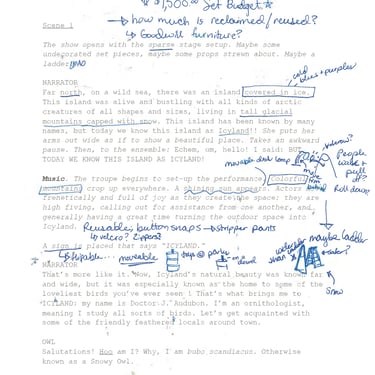 * $1,500.00 Set Budget *
→ how much is reclaimed/reused?
↳ Goodwill furniture?
Scene 1
The show opens with the sparse stage setup. Maybe some
undecorated set pieces, maybe some props strewn about. Maybe a
ladder.
cold
blues + purples
NARRATOR
Far north, on a wild sea, there was an island covered in ice.
This island was alive and bustling with all kinds of arctic
creatures of all shapes and sizes, living in tall glacial
mountains capped with snow. This island has been known by many
names, but today we know this island as Icyland!! She puts her
arms out wide as if to show a beautiful place. Takes an awkward
pause. Then, to the ensemble: Echem, um, hello! I said: BUT
TODAY WE KNOW THIS ISLAND AS ICYLAND!
moveable desk lamp
window?
People
walk +
pull
off?
from
behind
Roll down?
Music. The troupe begins to set-up the performance. Colorful
mountains crop up everywhere. A shining sun appears. Actors
frenetically and full of joy as they create the space: they are
high fiving, calling out for assistance from one another, and
generally having a great time turning the outdoor space into
Icyland.
Reusable, button snaps → stripper pants
↳ velcro? Zippers?
A sign is placed that says "ICYLAND."
↳ flipable...
moveable
on
dowel
maybe ladder
Snow
NARRATOR
That's more like it. Now, Icyland's natural beauty was known far
and wide, but it was especially known as the home to some of the
loveliest birds you've ever seen! That's what brings me to
ICYLAND: my name is Doctor J. Audubon. I'm an ornithologist,
meaning I study all sorts of birds. Let's get acquainted with
some of the friendly feathered locals around town.
OWL
Salutations! Hoo am I? Why, I am bubo scandiacus. Otherwise
known as a Snowy Owl.